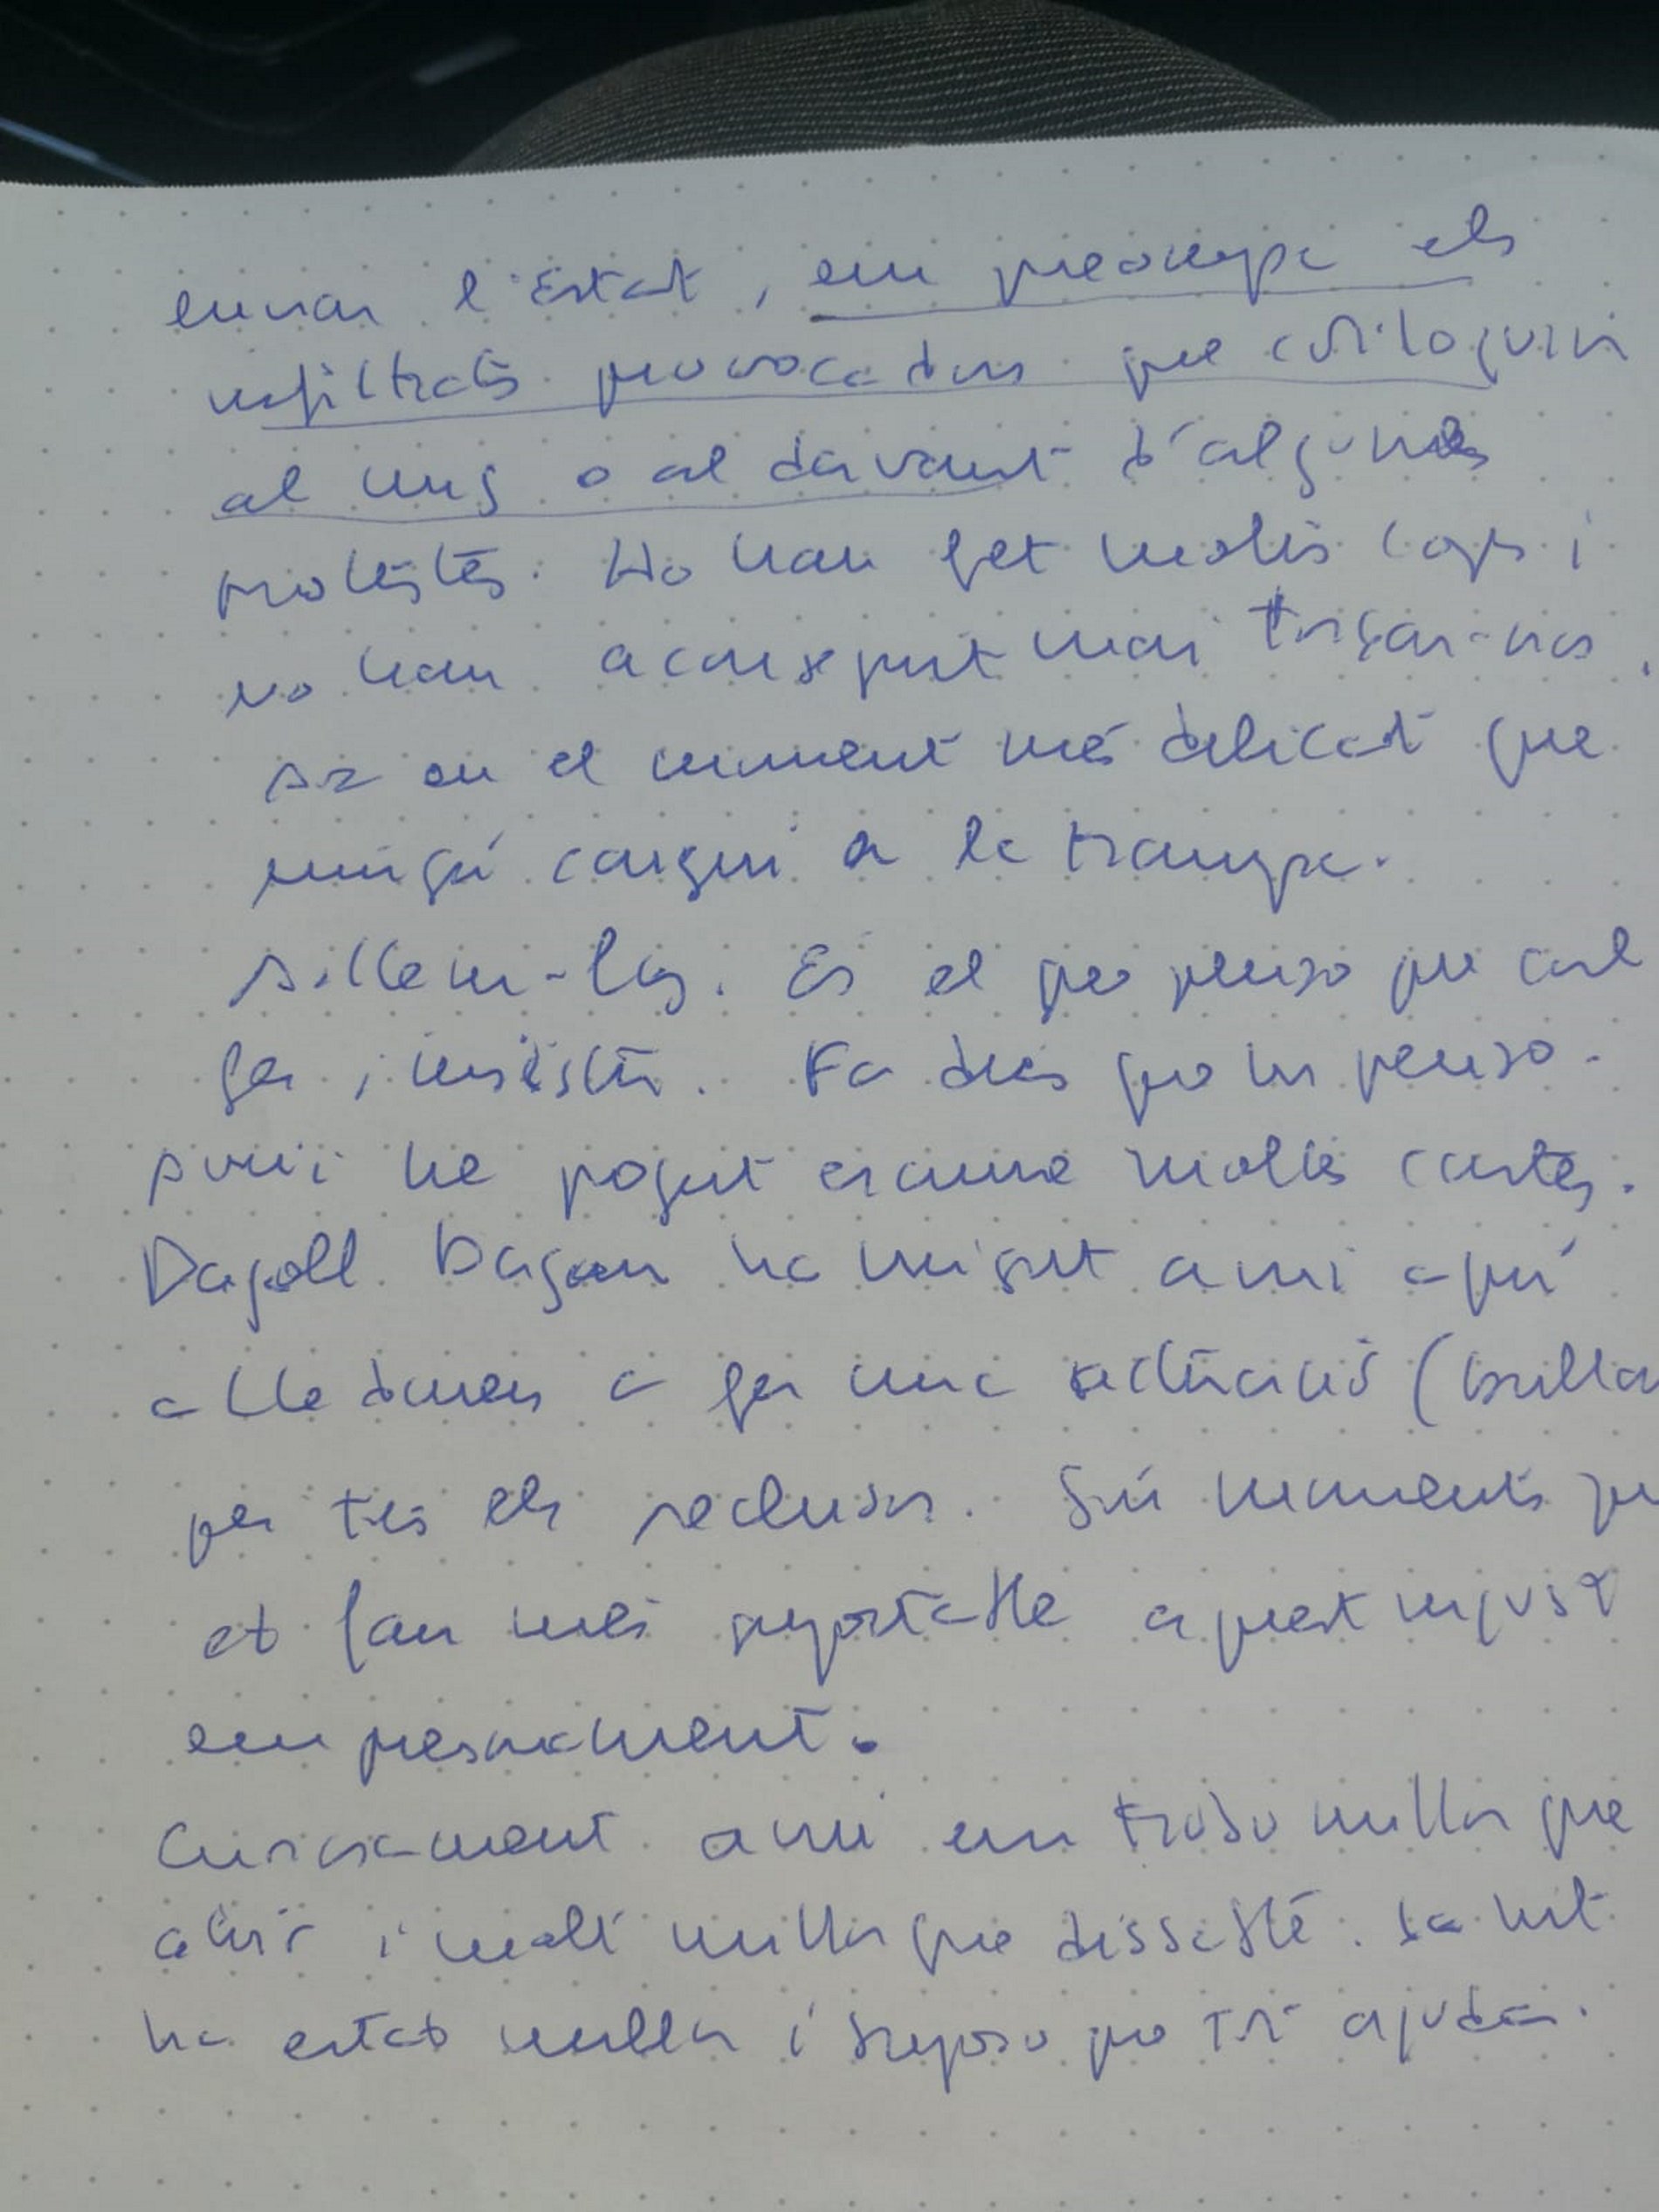 enviar l'Estat, em preocupa els
infiltrats provocadors que es col·loquin
al mig o al davant d'algunes
protestes. Ho han fet molts cops i
no han aconseguit mai torçar-nos.
en el moment més delicat que
ningú caigui a la trampa.
Aïllem-los. És el que penso que cal
fer i insistir. Fa dies que ho penso.
Avui he pogut escriure moltes cartes.
Dagoll Dagom ha vingut avui aquí
a Lledoners a fer una actuació (brillan
per tots els reclusos. Són moments que
et fan més suportable aquest injust
empresonament.
Curiosament avui em trobo millor que
ahir i molt millor que dissabte. La nit
ha estat millor i suposo que tot ajuda.